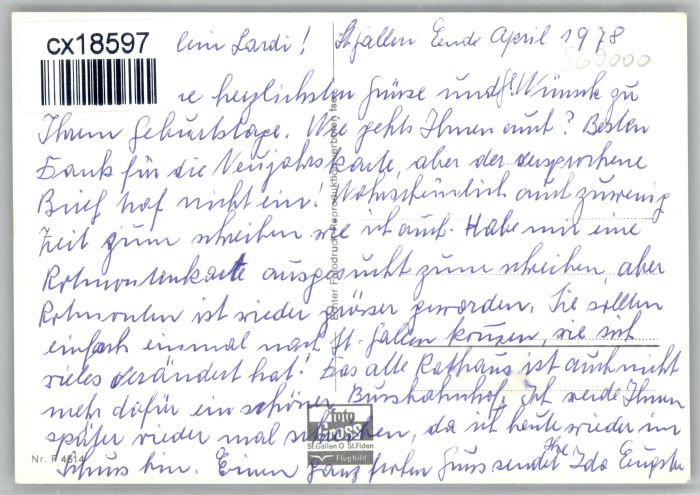 cx18597
lein Lardi! St. Gallen Ende April 1978
569000
re herzlichsten Grüsse und Wünsche zu
Ihrem Geburtstage. Wie gehts Ihnen euch? Besten
Dank für die Neujahrskarte, aber der versprochene
Brief traf nicht ein! Wahrscheinlich auch zuwenig
Zeit zum schreiben wie ich auch. Habe mir eine
Rotmontenkarte ausgesucht zum schreiben, aber
Rotmonten ist wieder grösser geworden. Sie sollten
einfach einmal nach St. Gallen kommen, wie sich
vieles verändert hat! Das alte Rathaus ist auch nicht
mehr dafür ein schöner Bussbahnhof. Ich werde Ihnen
später wieder mal schreiben, da ich heute wieder im
Schuss bin. Einen ganz Gruss sendet Ihre Ida Eugster
foto
Gross
St.Gallen O St.Fiden
Flugbild
Nr. F 4614